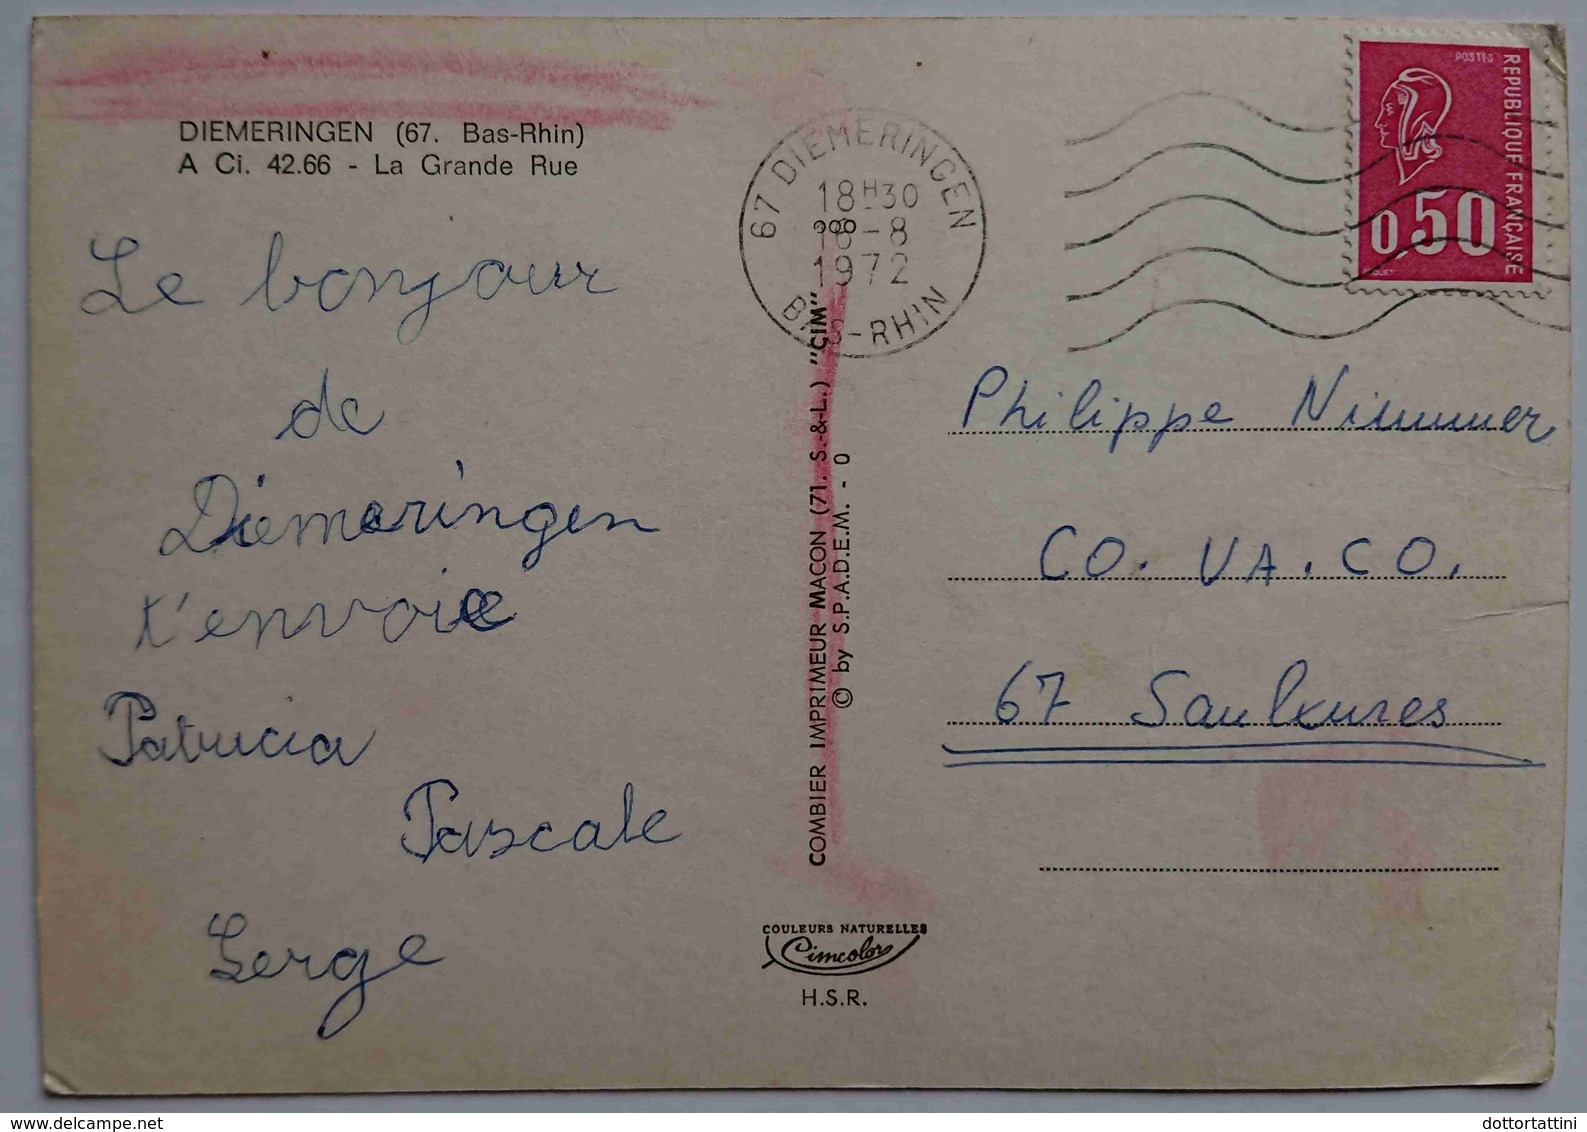 DIEMERINGEN (67. Bas-Rhin)
A Ci. 42.66 - La Grande Rue
Le bonjour
de
Diemeringen
t'envoie
Patricia
Pascale
Serge
67 DIEMERINGEN
18H30
18-8
1972
BAS-RHIN
COMBIER IMPRIMEUR MACON (71. S.-&-L.) "CIM"
© by S.P.A.D.E.M. - O
COULEURS NATURELLES
Cimcolor
H.S.R.
POSTES
REPUBLIQUE FRANÇAISE
0,50
Philippe Nimmer
CO. VA. CO.
67 Saulxures
dottortattini